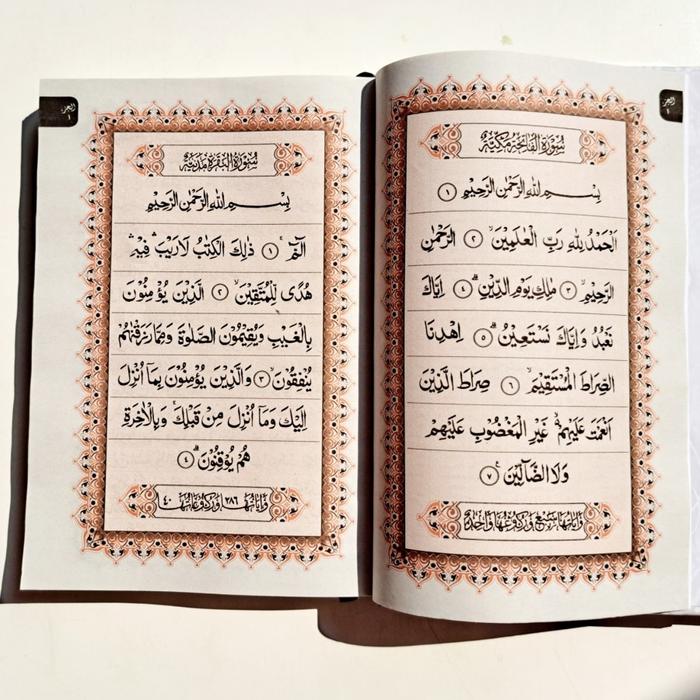 الجزء
١
سُوْرَةُ الْفَاتِحَةِ مَكِّيَّةٌ
بِسْمِ اللهِ الرَّحْمٰنِ الرَّحِيْمِ ١
اَلْحَمْدُ لِلهِ رَبِّ الْعٰلَمِيْنَۙ ٢ الرَّحْمٰنِ
الرَّحِيْمِۙ ٣ مٰلِكِ يَوْمِ الدِّيْنِۗ ٤ اِيَّاكَ
نَعْبُدُ وَاِيَّاكَ نَسْتَعِيْنُۗ ٥ اِهْدِنَا
الصِّرَاطَ الْمُسْتَقِيْمَۙ ٦ صِرَاطَ الَّذِيْنَ
اَنْعَمْتَ عَلَيْهِمْ ەۙ غَيْرِ الْمَغْضُوْبِ عَلَيْهِمْ
وَلَا الضَّاۤلِّيْنَ ࣖ ٧
وَاٰيَاتُهَا سَبْعٌ وَرُكُوْعُهَا وَاحِدَةٌ
الجزء
١
سُوْرَةُ الْبَقَرَةِ مَدَنِيَّةٌ
بِسْمِ اللهِ الرَّحْمٰنِ الرَّحِيْمِ
الۤمّۤ ۚ ١ ذٰلِكَ الْكِتٰبُ لَا رَيْبَ ۛ فِيْهِ ۛ
هُدًى لِّلْمُتَّقِيْنَۙ ٢ الَّذِيْنَ يُؤْمِنُوْنَ
بِالْغَيْبِ وَيُقِيْمُوْنَ الصَّلٰوةَ وَمِمَّا رَزَقْنٰهُمْ
يُنْفِقُوْنَۙ ٣ وَالَّذِيْنَ يُؤْمِنُوْنَ بِمَآ اُنْزِلَ
اِلَيْكَ وَمَآ اُنْزِلَ مِنْ قَبْلِكَۚ وَبِالْاٰخِرَةِ
هُمْ يُوْقِنُوْنَۗ ٤
وَاٰيَاتُهَا ٢٨٦ وَرُكُوْعَاتُهَا ٤٠